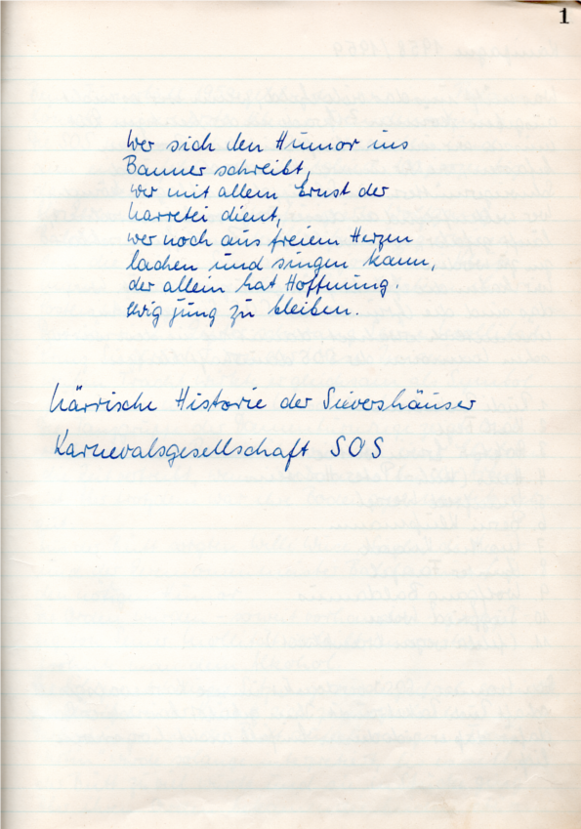 1
Wer sich den Humor ins
Banner schreibt,
wer mit allem Ernst der
Narretei dient,
wer noch aus freiem Herzen
lachen und singen kann,
der allein hat Hoffnung.
ewig jung zu bleiben.
Närrische Historie der Sievershäuser
Karnevalsgesellschaft SOS